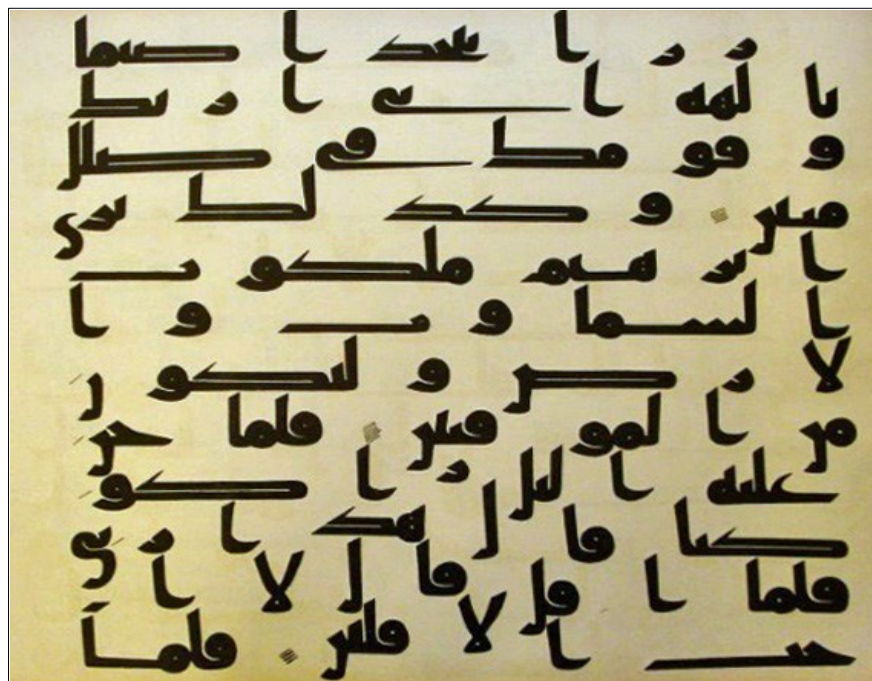 زر اتتخذ اصنما
ا لهه انى اريك
و قومك فى ضلل
مبين و كذلك نرى
ابرهيم ملكوت
السموت و ا
لارض و ليكون
من الموقنين فلما جن
عليه اليل را كو
كبا قال هذا ربى
فلما افل قال لا ا
حب الافلين فلما